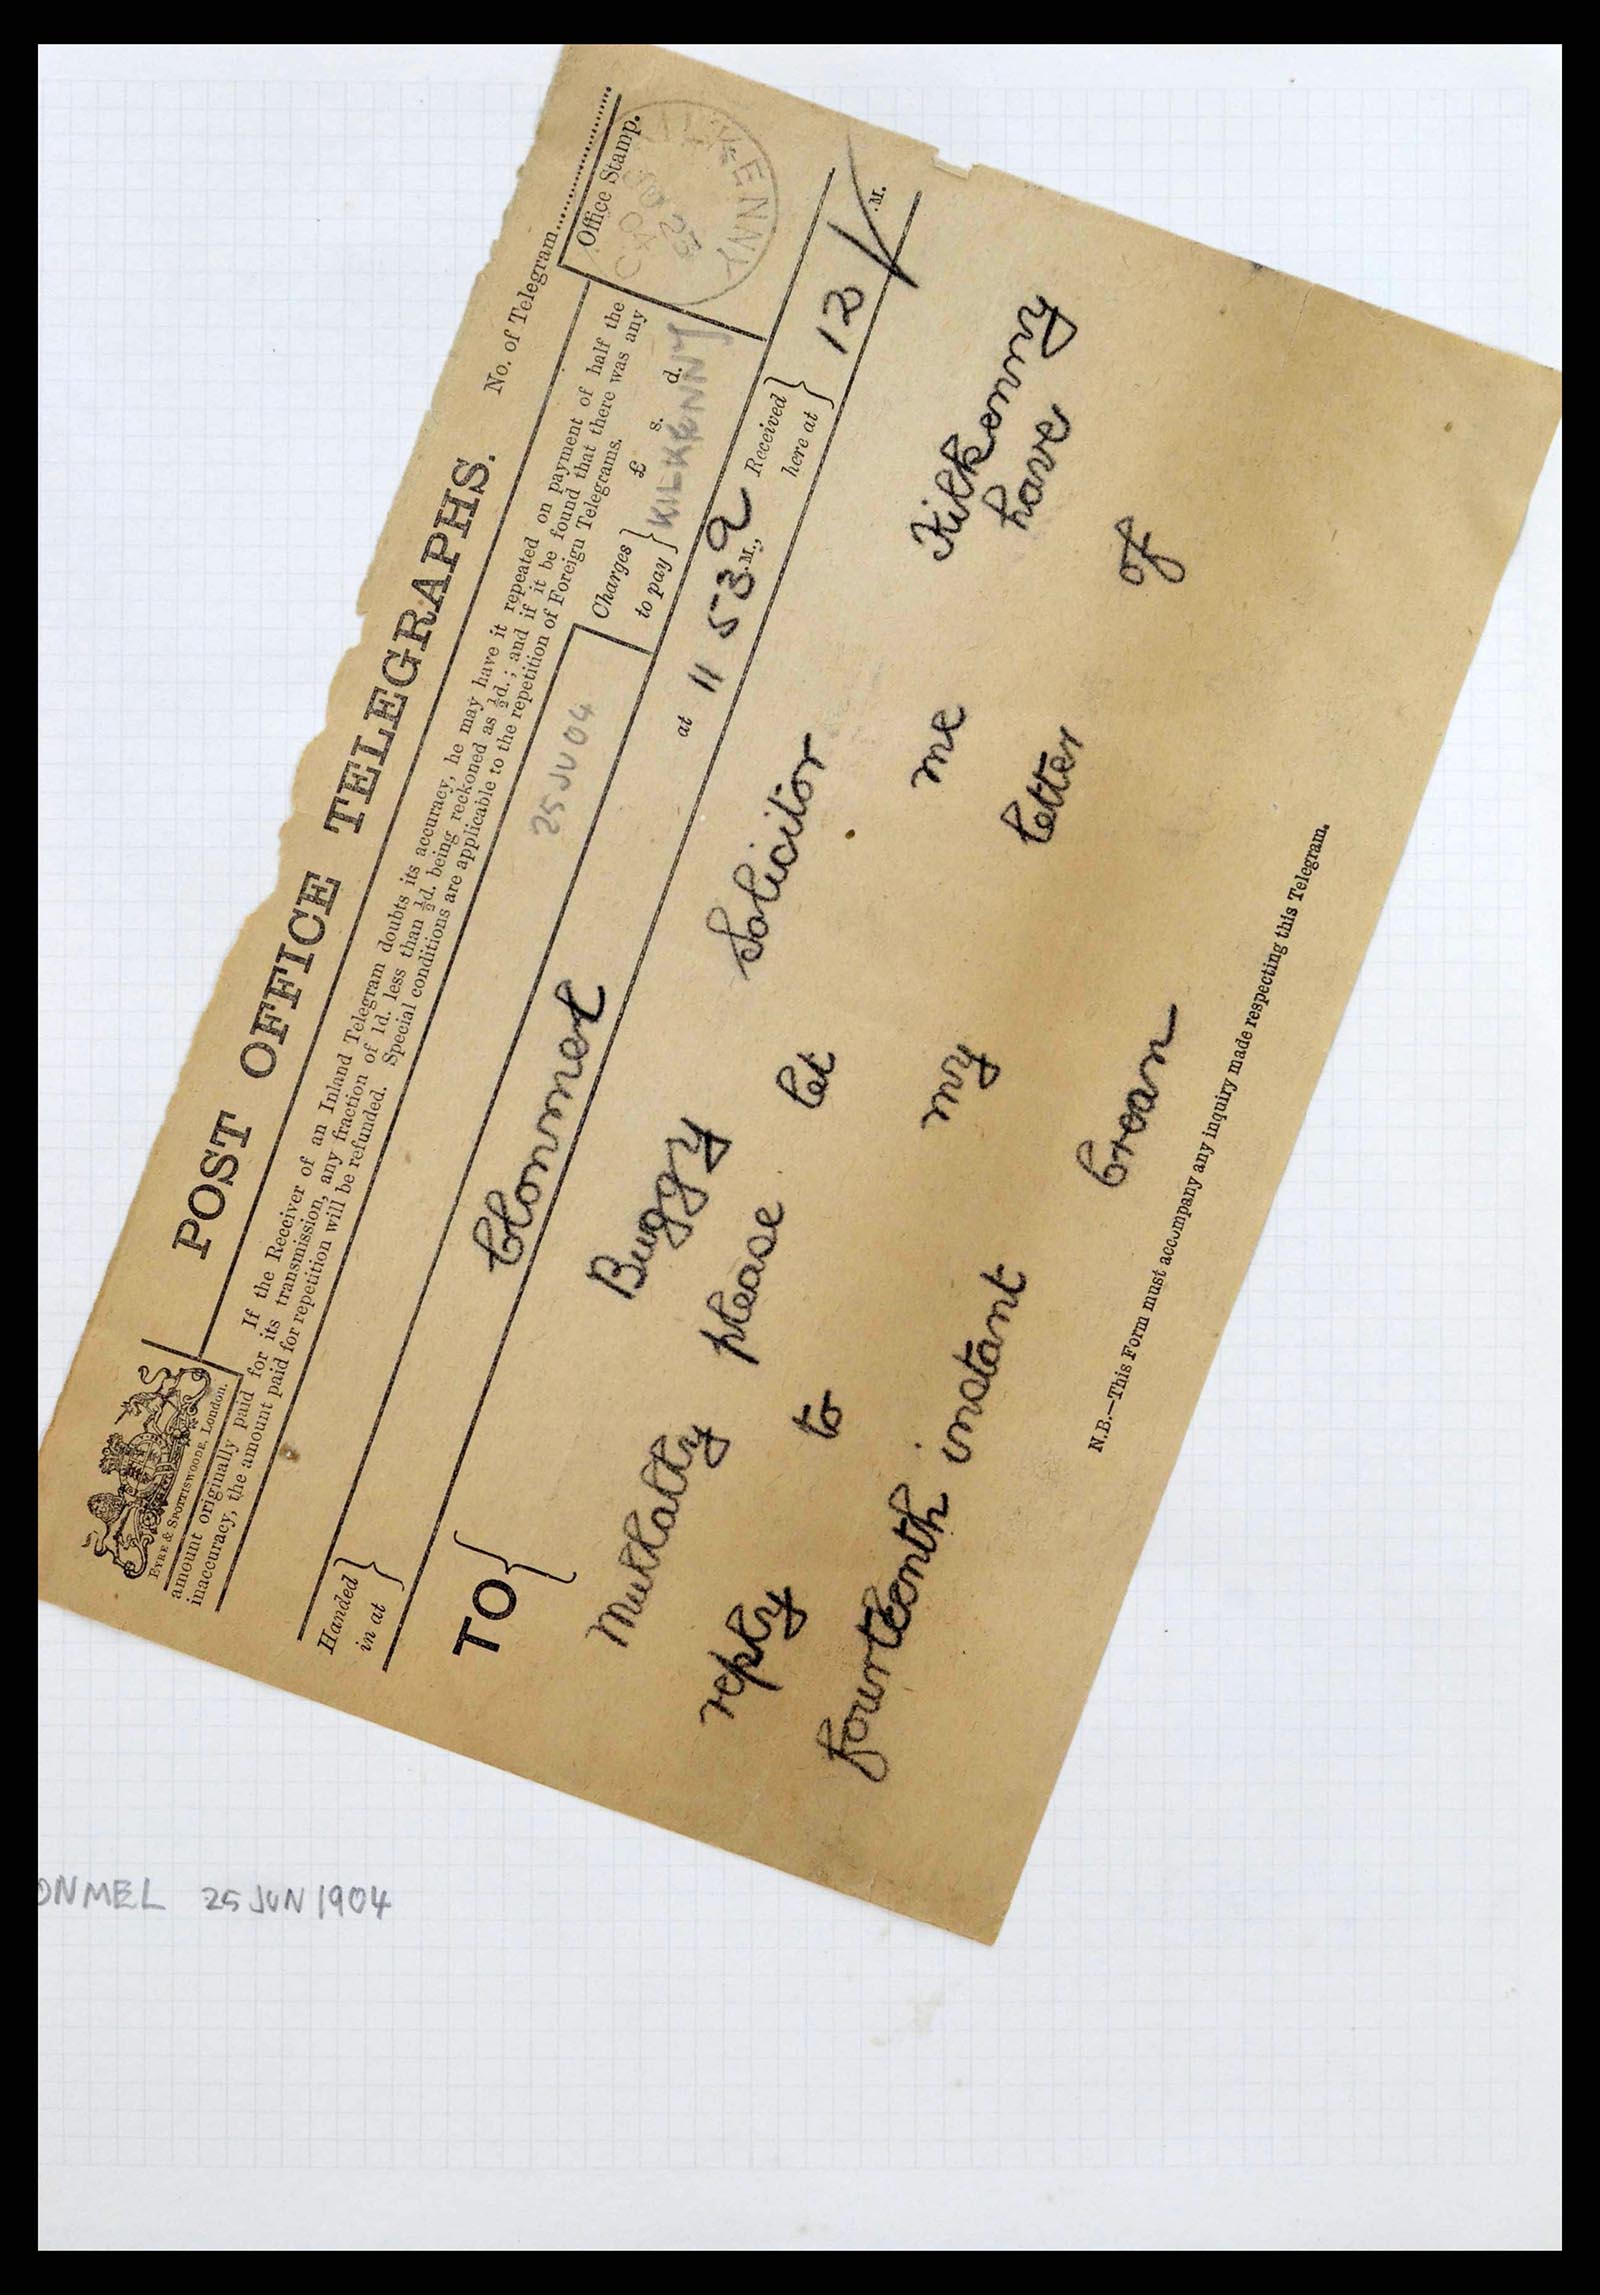 POST OFFICE TELEGRAPHS.
No. of Telegram
EYRE & SPOTTISWOODE, London.
If the Receiver of an Inland Telegram doubts its accuracy, he may have it repeated on payment of half the
amount originally paid for its transmission, any fraction of 1d. less than ½d. being reckoned as ½d.; and if it be found that there was any
inaccuracy, the amount paid for repetition will be refunded. Special conditions are applicable to the repetition of Foreign Telegrams.
Office Stamp.
KILKENNY
25
04
Charges to pay } £ s. d.
KILKENNY
25 JU 04
Handed in at } Clonmel at 11 53 a .M., Received here at } 12 .M.
TO {
Mulhalty Buggy Solicitor Kilkenny
please let me have
reply to my letter of
fourteenth instant Crean
N.B.—This Form must accompany any inquiry made respecting this Telegram.
ONMEL 25 JUN 1904